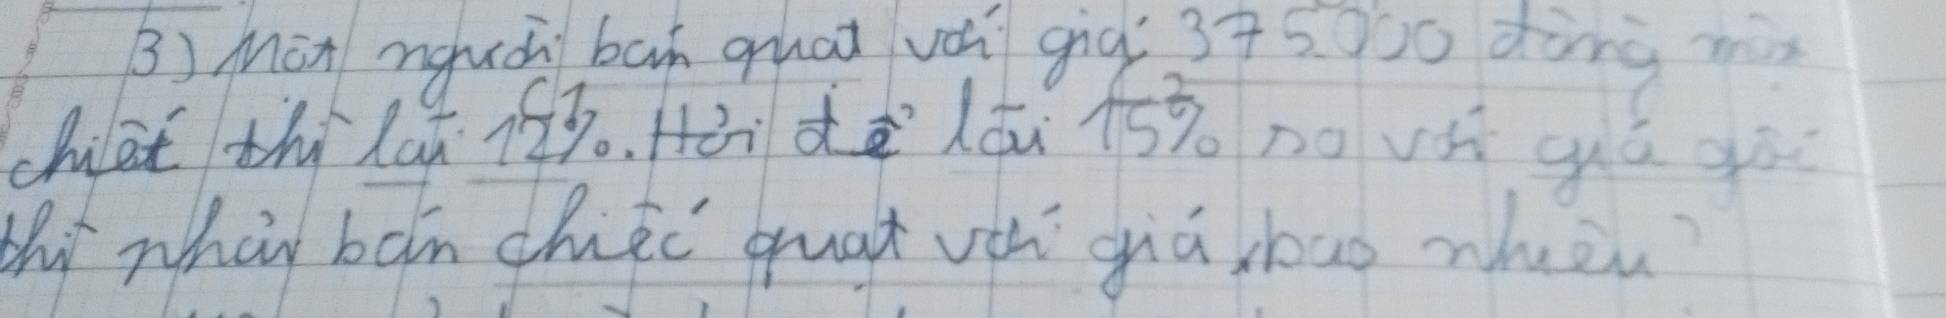 3) Một người bán quạt với giá 375000 đồng một
chiếc thì lãi 12%. Hỏi để lãi 15% so với giá gốc
thì phải bán chiếc quạt với giá bao nhiêu?